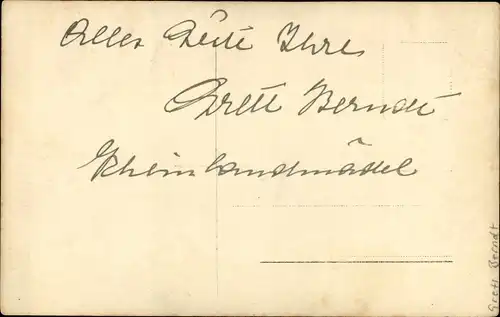 Alles Gute Ihre
Gretl Berndt
Rheinlandmädel
Gretl Berndt